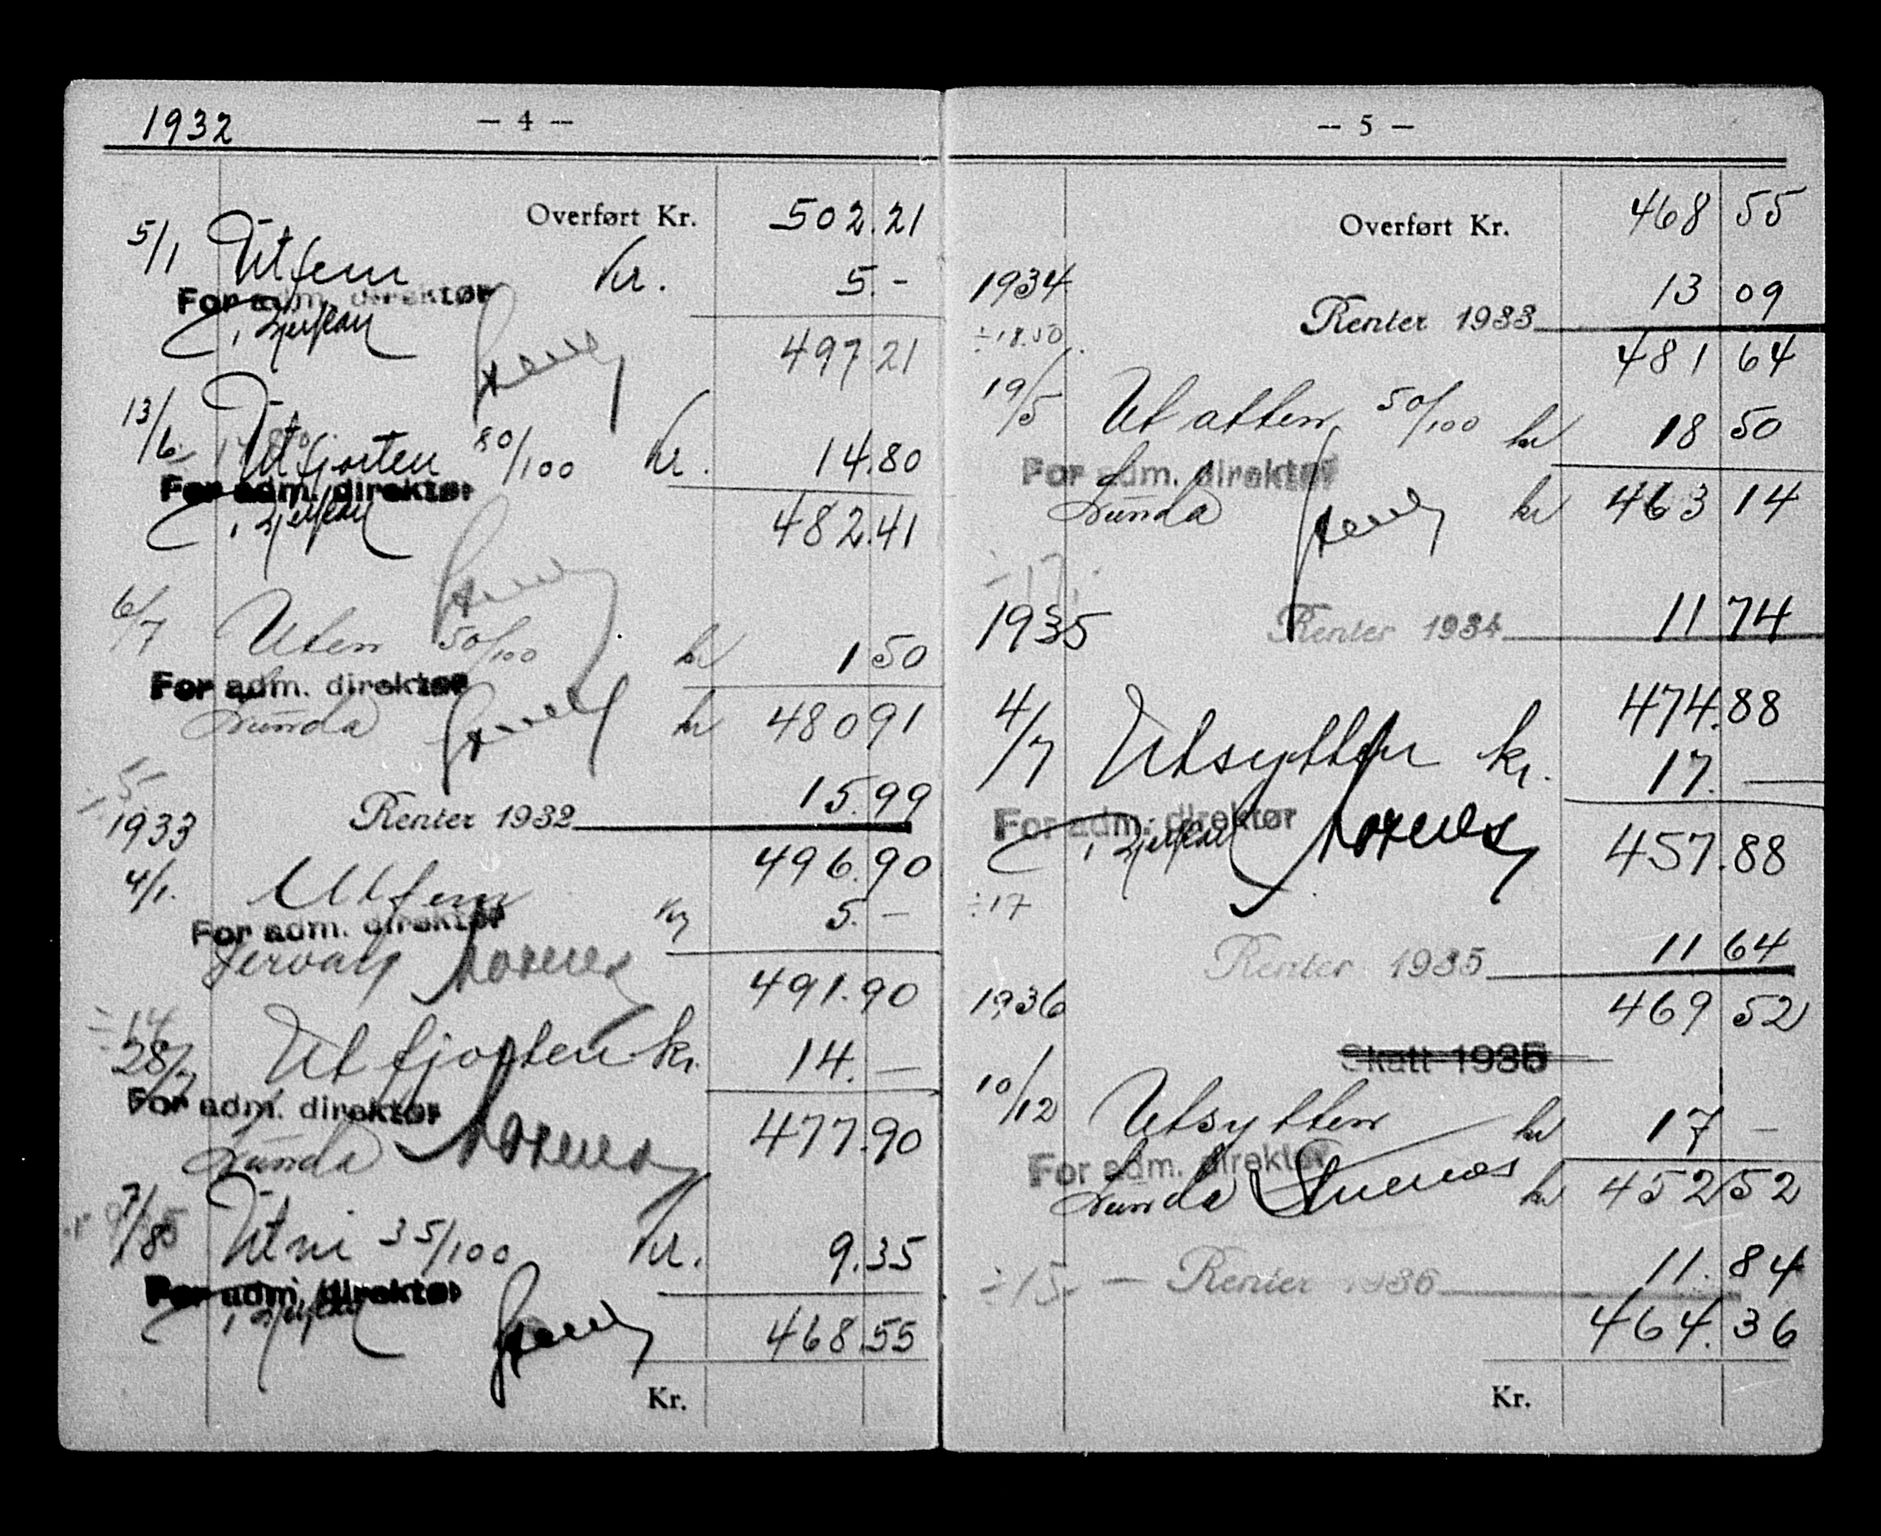 1932 — 4 —
Overført Kr. 502.21
5/1 Ut fem Kr. 5.-
For adm. direktør
497.21
13/6 Ut fjorten 80/100 Kr. 14.80
For adm. direktør
482.41
6/7 Ut en 50/100 kr 1 50
For adm. direktør
Sunda kr 480 91
÷ 5
1933 Renter 1932 15.99
496.90
4/1. Ut fem Kr 5.—
For adm. direktør
491.90
÷14
28/7 Ut fjorten kr. 14.—
For adm. direktør
Sunda 477.90
7/8 Ut ni 35/100 Kr. 9.35
For adm. direktør
468.55
Kr.
— 5 —
Overført Kr. 468 55
1934 Renter 1933 13 09
÷18.50 481 64
19/5 Ut atten 50/100 kr 18 50
For adm. direktør
Sunda kr 463 14
÷17.
1935 Renter 1934 11 74
474.88
4/7 Ut sytten kr. 17.—
For adm. direktør
457.88
÷17
Renter 1935 11 64
1936 469 52
Skatt 1935
10/12 Ut sytten kr 17 —
For adm. direktør
Sunda kr 452 52
÷15 — Renter 1936 11.84
464.36
Kr.